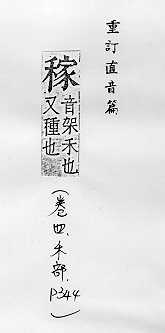 重訂直音篇
稼
音架禾也
又種也
(卷四.禾部.P344)